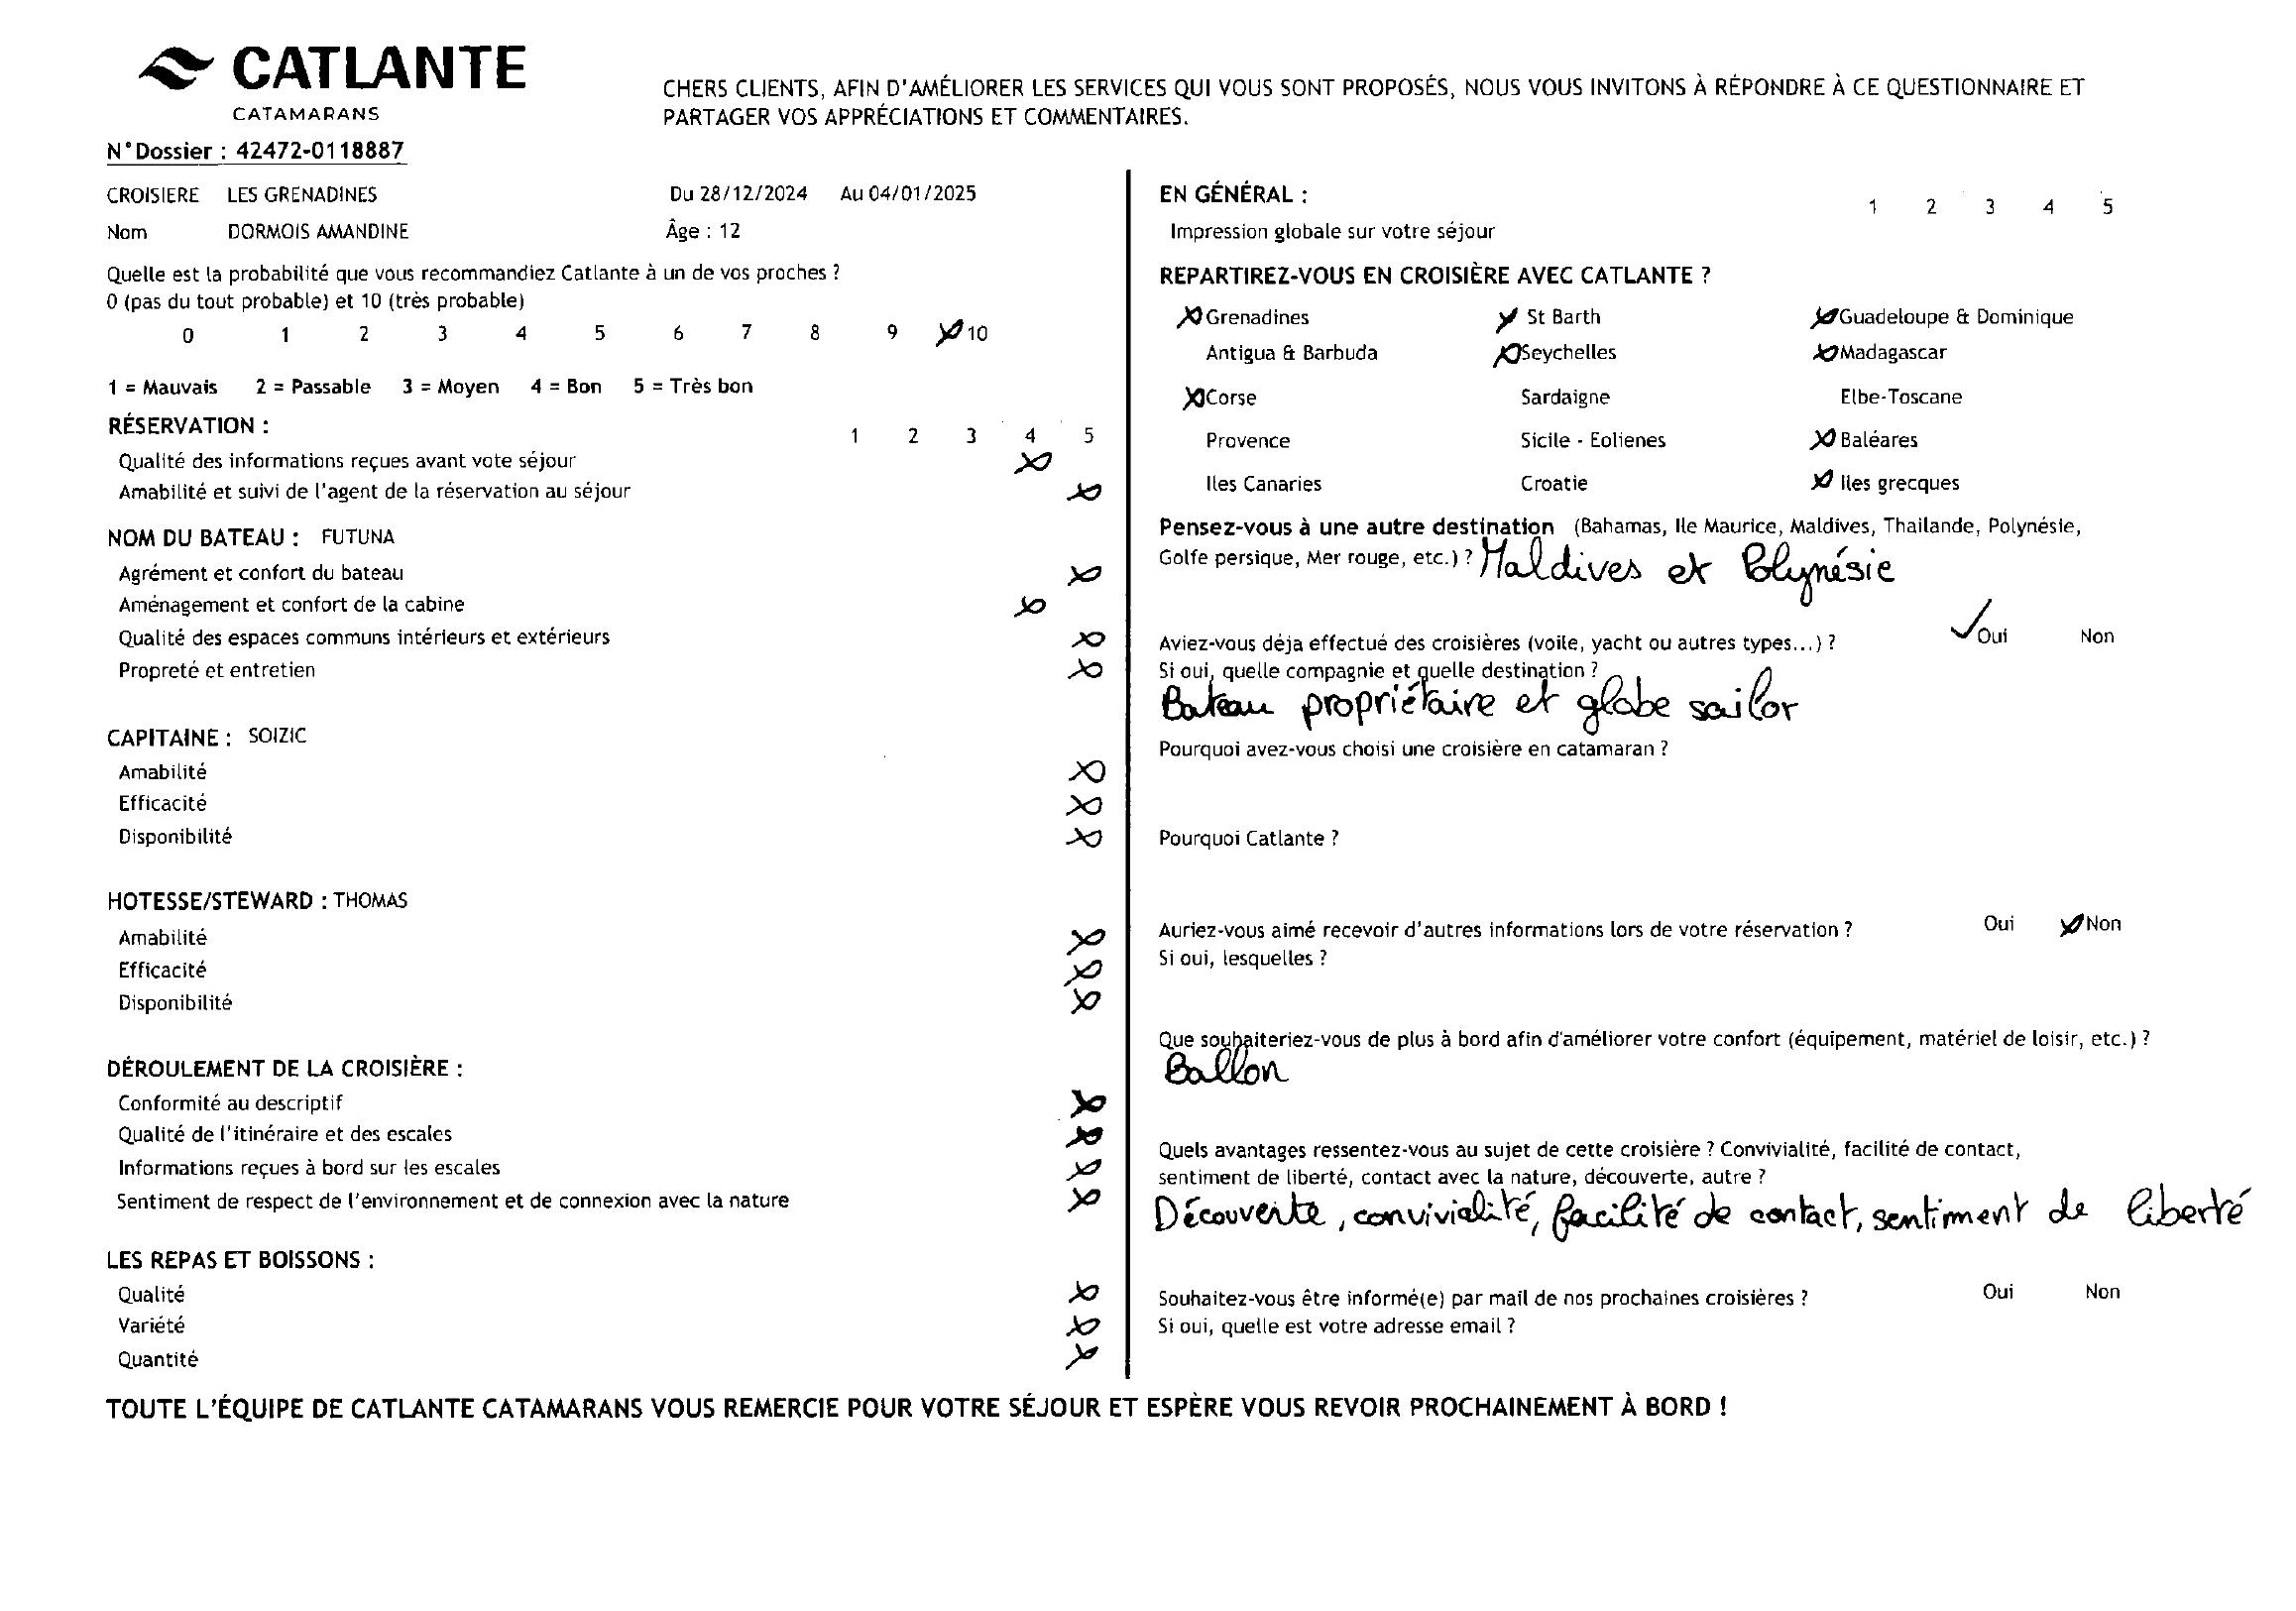 CATLANTE
CATAMARANS
CHERS CLIENTS, AFIN D'AMÉLIORER LES SERVICES QUI VOUS SONT PROPOSÉS, NOUS VOUS INVITONS À RÉPONDRE À CE QUESTIONNAIRE ET
PARTAGER VOS APPRÉCIATIONS ET COMMENTAIRES.
N°Dossier : 42472-0118887
CROISIERE LES GRENADINES Du 28/12/2024 Au 04/01/2025
Nom DORMOIS AMANDINE Âge : 12
Quelle est la probabilité que vous recommandiez Catlante à un de vos proches ?
0 (pas du tout probable) et 10 (très probable)
0 1 2 3 4 5 6 7 8 9 10
1 = Mauvais 2 = Passable 3 = Moyen 4 = Bon 5 = Très bon
RÉSERVATION :
1 2 3 4 5
Qualité des informations reçues avant vote séjour
Amabilité et suivi de l'agent de la réservation au séjour
NOM DU BATEAU : FUTUNA
Agrément et confort du bateau
Aménagement et confort de la cabine
Qualité des espaces communs intérieurs et extérieurs
Propreté et entretien
CAPITAINE : SOIZIC
Amabilité
Efficacité
Disponibilité
HOTESSE/STEWARD : THOMAS
Amabilité
Efficacité
Disponibilité
DÉROULEMENT DE LA CROISIÈRE :
Conformité au descriptif
Qualité de l'itinéraire et des escales
Informations reçues à bord sur les escales
Sentiment de respect de l'environnement et de connexion avec la nature
LES REPAS ET BOISSONS :
Qualité
Variété
Quantité
EN GÉNÉRAL :
1 2 3 4 5
Impression globale sur votre séjour
REPARTIREZ-VOUS EN CROISIÈRE AVEC CATLANTE ?
Grenadines St Barth Guadeloupe & Dominique
Antigua & Barbuda Seychelles Madagascar
Corse Sardaigne Elbe-Toscane
Provence Sicile - Eolienes Baléares
Iles Canaries Croatie Iles grecques
Pensez-vous à une autre destination (Bahamas, Ile Maurice, Maldives, Thailande, Polynésie,
Golfe persique, Mer rouge, etc.) ? Maldives et Polynésie
Aviez-vous déja effectué des croisières (voile, yacht ou autres types...) ? Oui Non
Si oui, quelle compagnie et quelle destination ?
Bateau propriétaire et globe sailor
Pourquoi avez-vous choisi une croisière en catamaran ?
Pourquoi Catlante ?
Auriez-vous aimé recevoir d'autres informations lors de votre réservation ? Oui Non
Si oui, lesquelles ?
Que souhaiteriez-vous de plus à bord afin d'améliorer votre confort (équipement, matériel de loisir, etc.) ?
Ballon
Quels avantages ressentez-vous au sujet de cette croisière ? Convivialité, facilité de contact,
sentiment de liberté, contact avec la nature, découverte, autre ?
Découverte, convivialité, facilité de contact, sentiment de liberté
Souhaitez-vous être informé(e) par mail de nos prochaines croisières ? Oui Non
Si oui, quelle est votre adresse email ?
TOUTE L'ÉQUIPE DE CATLANTE CATAMARANS VOUS REMERCIE POUR VOTRE SÉJOUR ET ESPÈRE VOUS REVOIR PROCHAINEMENT À BORD !